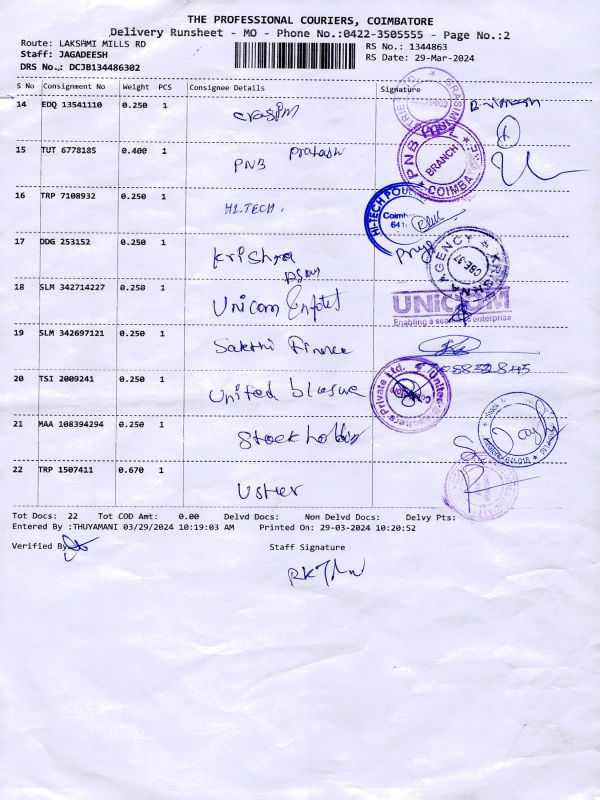 THE PROFESSIONAL COURIERS, COIMBATORE
Delivery Runsheet - MO - Phone No.:0422-3505555 - Page No.:2
Route: LAKSHMI MILLS RD
RS No.: 1344863
Staff: JAGADEESH
RS Date: 29-Mar-2024
DRS No.: DCJB134486302
S No Consignment No Weight PCS Consignee Details Signature
14 EDQ 13541110 0.250 1
15 TUT 6778185 0.400 1 PNB Prakash
PNB BRANCH COIMBA
16 TRP 7108932 0.250 1 HI-TECH.
HI-TECH Coimb 641
17 DDG 253152 0.250 1 Krishna
KRISHNA AGENCY CBE-37
18 SLM 342714227 0.250 1 Unicom
UNICOM
Enabling a enterprise
19 SLM 342697121 0.250 1 Sakthi Finance
20 TSI 2009241 0.250 1 United
Private Ltd. United
21 MAA 108394294 0.250 1 Stock
22 TRP 1507411 0.670 1 Usher
Tot Docs: 22 Tot COD Amt: 0.00 Delvd Docs: Non Delvd Docs: Delvy Pts:
Entered By :THUYAMANI 03/29/2024 10:19:03 AM Printed On: 29-03-2024 10:20:52
Verified By
Staff Signature